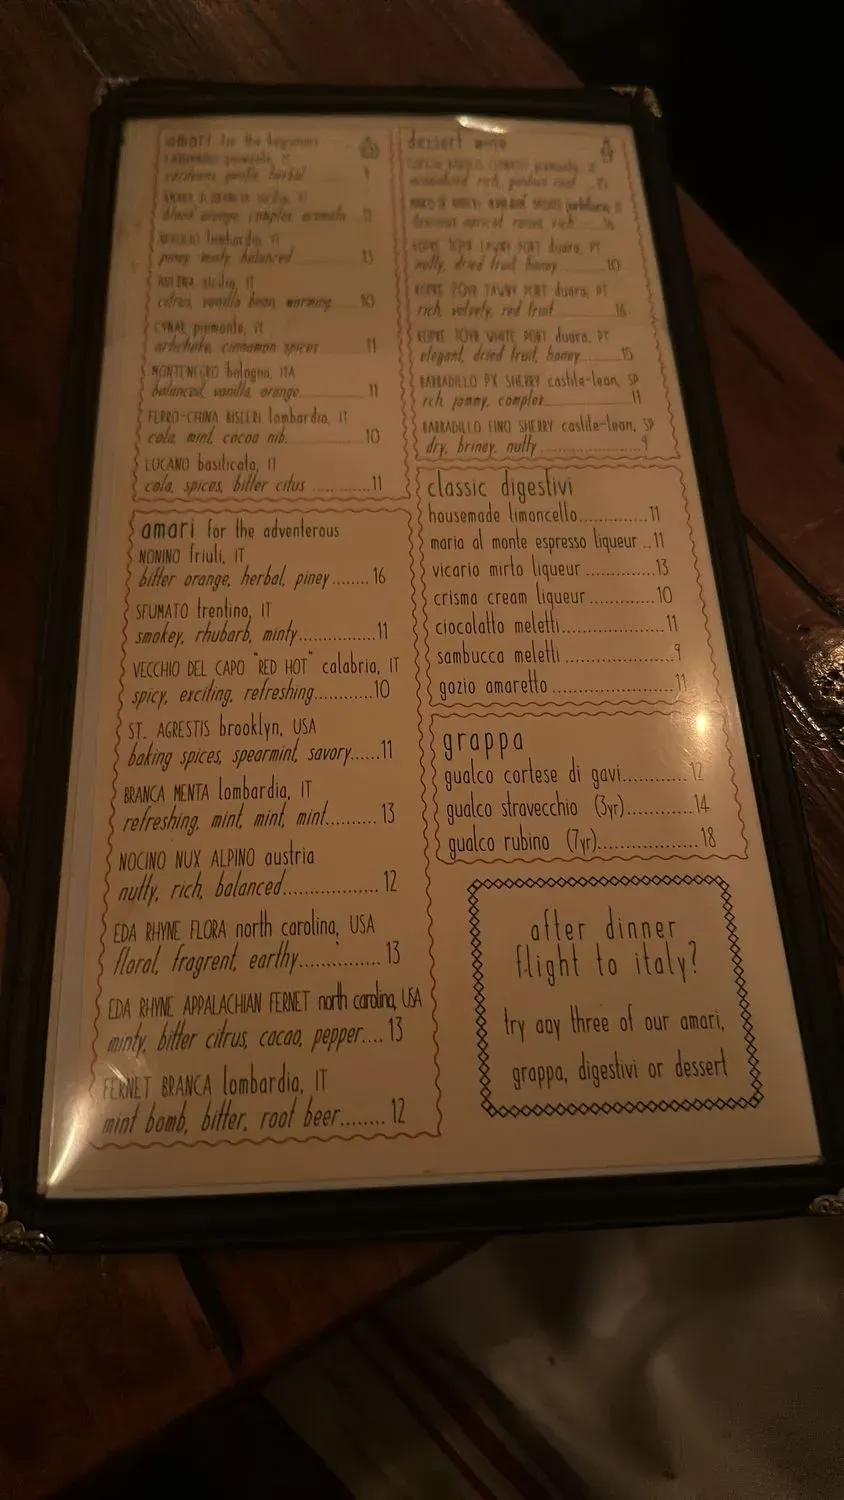 amari for the beginners
piemonte, IT
gentle herbal 9
sicilia, IT
blood orange, complex, aromatic 11
lombardia, IT
piney, minty, balanced 13
sicilia, IT
citrus, vanilla bean, warming 10
CYNAR piemonte, IT
artichoke, cinnamon spices 11
MONTENEGRO bologna, ITA
balanced, vanilla, orange 11
FERRO-CHINA BISLERI lombardia, IT
cola, mint, cocoa nib 10
LUCANO basilicata, IT
cola, spices, bitter citus ............11
amari for the adventerous
NONINO friuli, IT
bitter orange, herbal, piney........16
SFUMATO trentino, IT
smokey, rhubarb, minty...............11
VECCHIO DEL CAPO "RED HOT" calabria, IT
spicy, exciting, refreshing...........10
ST. AGRESTIS brooklyn, USA
baking spices, spearmint, savory......11
BRANCA MENTA lombardia, IT
refreshing, mint, mint, mint.......... 13
NOCINO NUX ALPINO austria
nutty, rich, balanced................. 12
EDA RHYNE FLORA north carolina, USA
floral, fragrent, earthy............... 13
EDA RHYNE APPALACHIAN FERNET north carolina, USA
minty, bitter citrus, cacao, pepper.... 13
FERNET BRANCA lombardia, IT
mint bomb, bitter, root beer........ 12
dessert wine
rich,
apricot raisin, rich 16
KOPKE 10YR TAWNY PORT duoro, PT
nutty, dried fruit, honey 10
KOPKE 20YR TAWNY PORT duoro, PT
rich, velvety, red fruit 16
KOPKE 10YR WHITE PORT duoro, PT
elegant, dried fruit, honey........15
BARBADILLO PX SHERRY castile-leon, SP
rch, jammy, complex 11
BARBADILLO FINO SHERRY castile-leon, SP
dry, briney, nutty 9
classic digestivi
housemade limoncello..............11
maria al monte espresso liqueur ..11
vicario mirto liqueur ..............13
crisma cream liqueur .............10
ciocolatto meletti.....................11
sambucca meletti ......................9
gozio amaretto .........................11
grappa
gualco cortese di gavi............12
gualco stravecchio (3yr)............14
gualco rubino (7yr)..................18
after dinner
flight to italy?
try aoy three of our amari,
grappa, digestivi or dessert